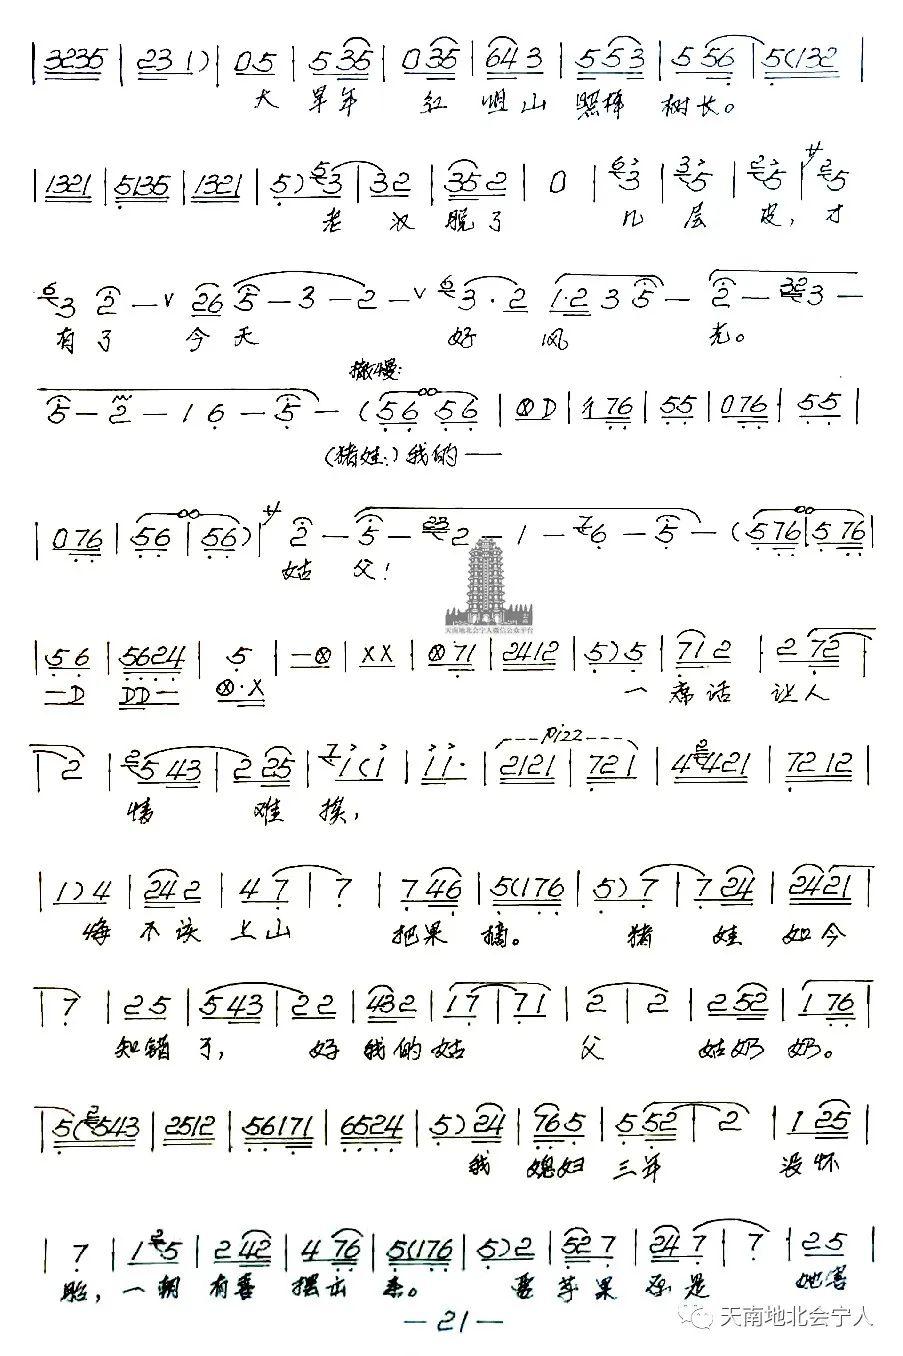 |3235|23 1)|05|5 35|0 35|643|553|5 56|5(132|
大旱年 红咀山照样树长。
|1321|5135|1321|5)3|32|352|0|3|5|5|5
老汉脱了 几层皮,才
3 2 — v 26 5 — 3 — 2 — v 3·2 1·2 3 5 — 2 — 3 —
有了 今天 好风光。
撤慢:
5 — 2 — 1 6 — 5 — (56 56|⊗D|1 76|55|0 76|55|
(猪娃:)我的——
|0 76|56|56)|2 — 5 — 2 — 1 — 6 — 5 — (5 76|5 76|
姑父!
天南地北会宁人微信公众平台
|5 6|5624|5|—⊗|XX|⊗ 71|2412|5)5|712|2 72|
二D DD二 ⊗·X 一席话 让人
|2|5 43|2 25|i(i|i i·|2121|721|4421|7212|
Pizz
情 难 挨,
|1)4|242|4 7|7|7 46|5(176|5)7|7 24|2421|
悔不该上山 把果摘。 猪娃如今
|7|25|5 43|22|432|17|71|2|2|2 52|1 76|
知错了, 好我的姑 父 姑奶奶。
|5(543|2512|56171|6524|5)24|765|5 52|2|1 25|
我媳妇三年 没怀
|7|1 5|2 42|4 76|5(176|5)2|52 7|24 7|7|25|
胎,一朝有喜摆出来。 要苹果原是 她害
—21—
天南地北会宁人